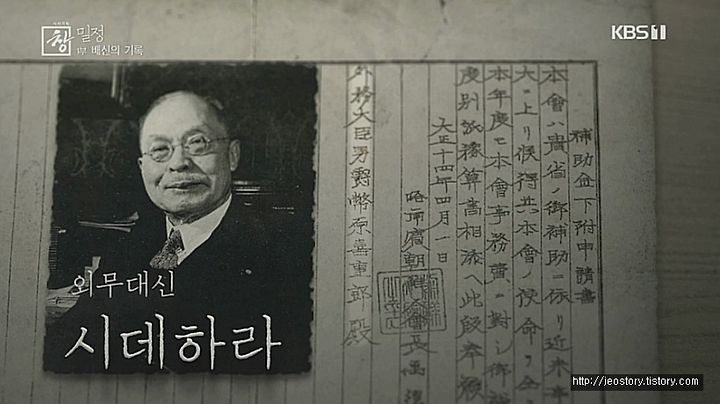 시사기획
창
밀정
1부 배신의 기록
KBS1
補助金下附申請書
本會ハ貴省ノ御補助ニ依リ近来事
大ニ上リ候得共本會ノ使命ヲ全
本年度モ本會事務費ニ對シ御
度別紙豫算書相添ヘ此段奉願
大正十四年四月一日
會長
外務大臣男爵幣原喜重郎殿
외무대신
시데하라
http://jeostory.tistory.com